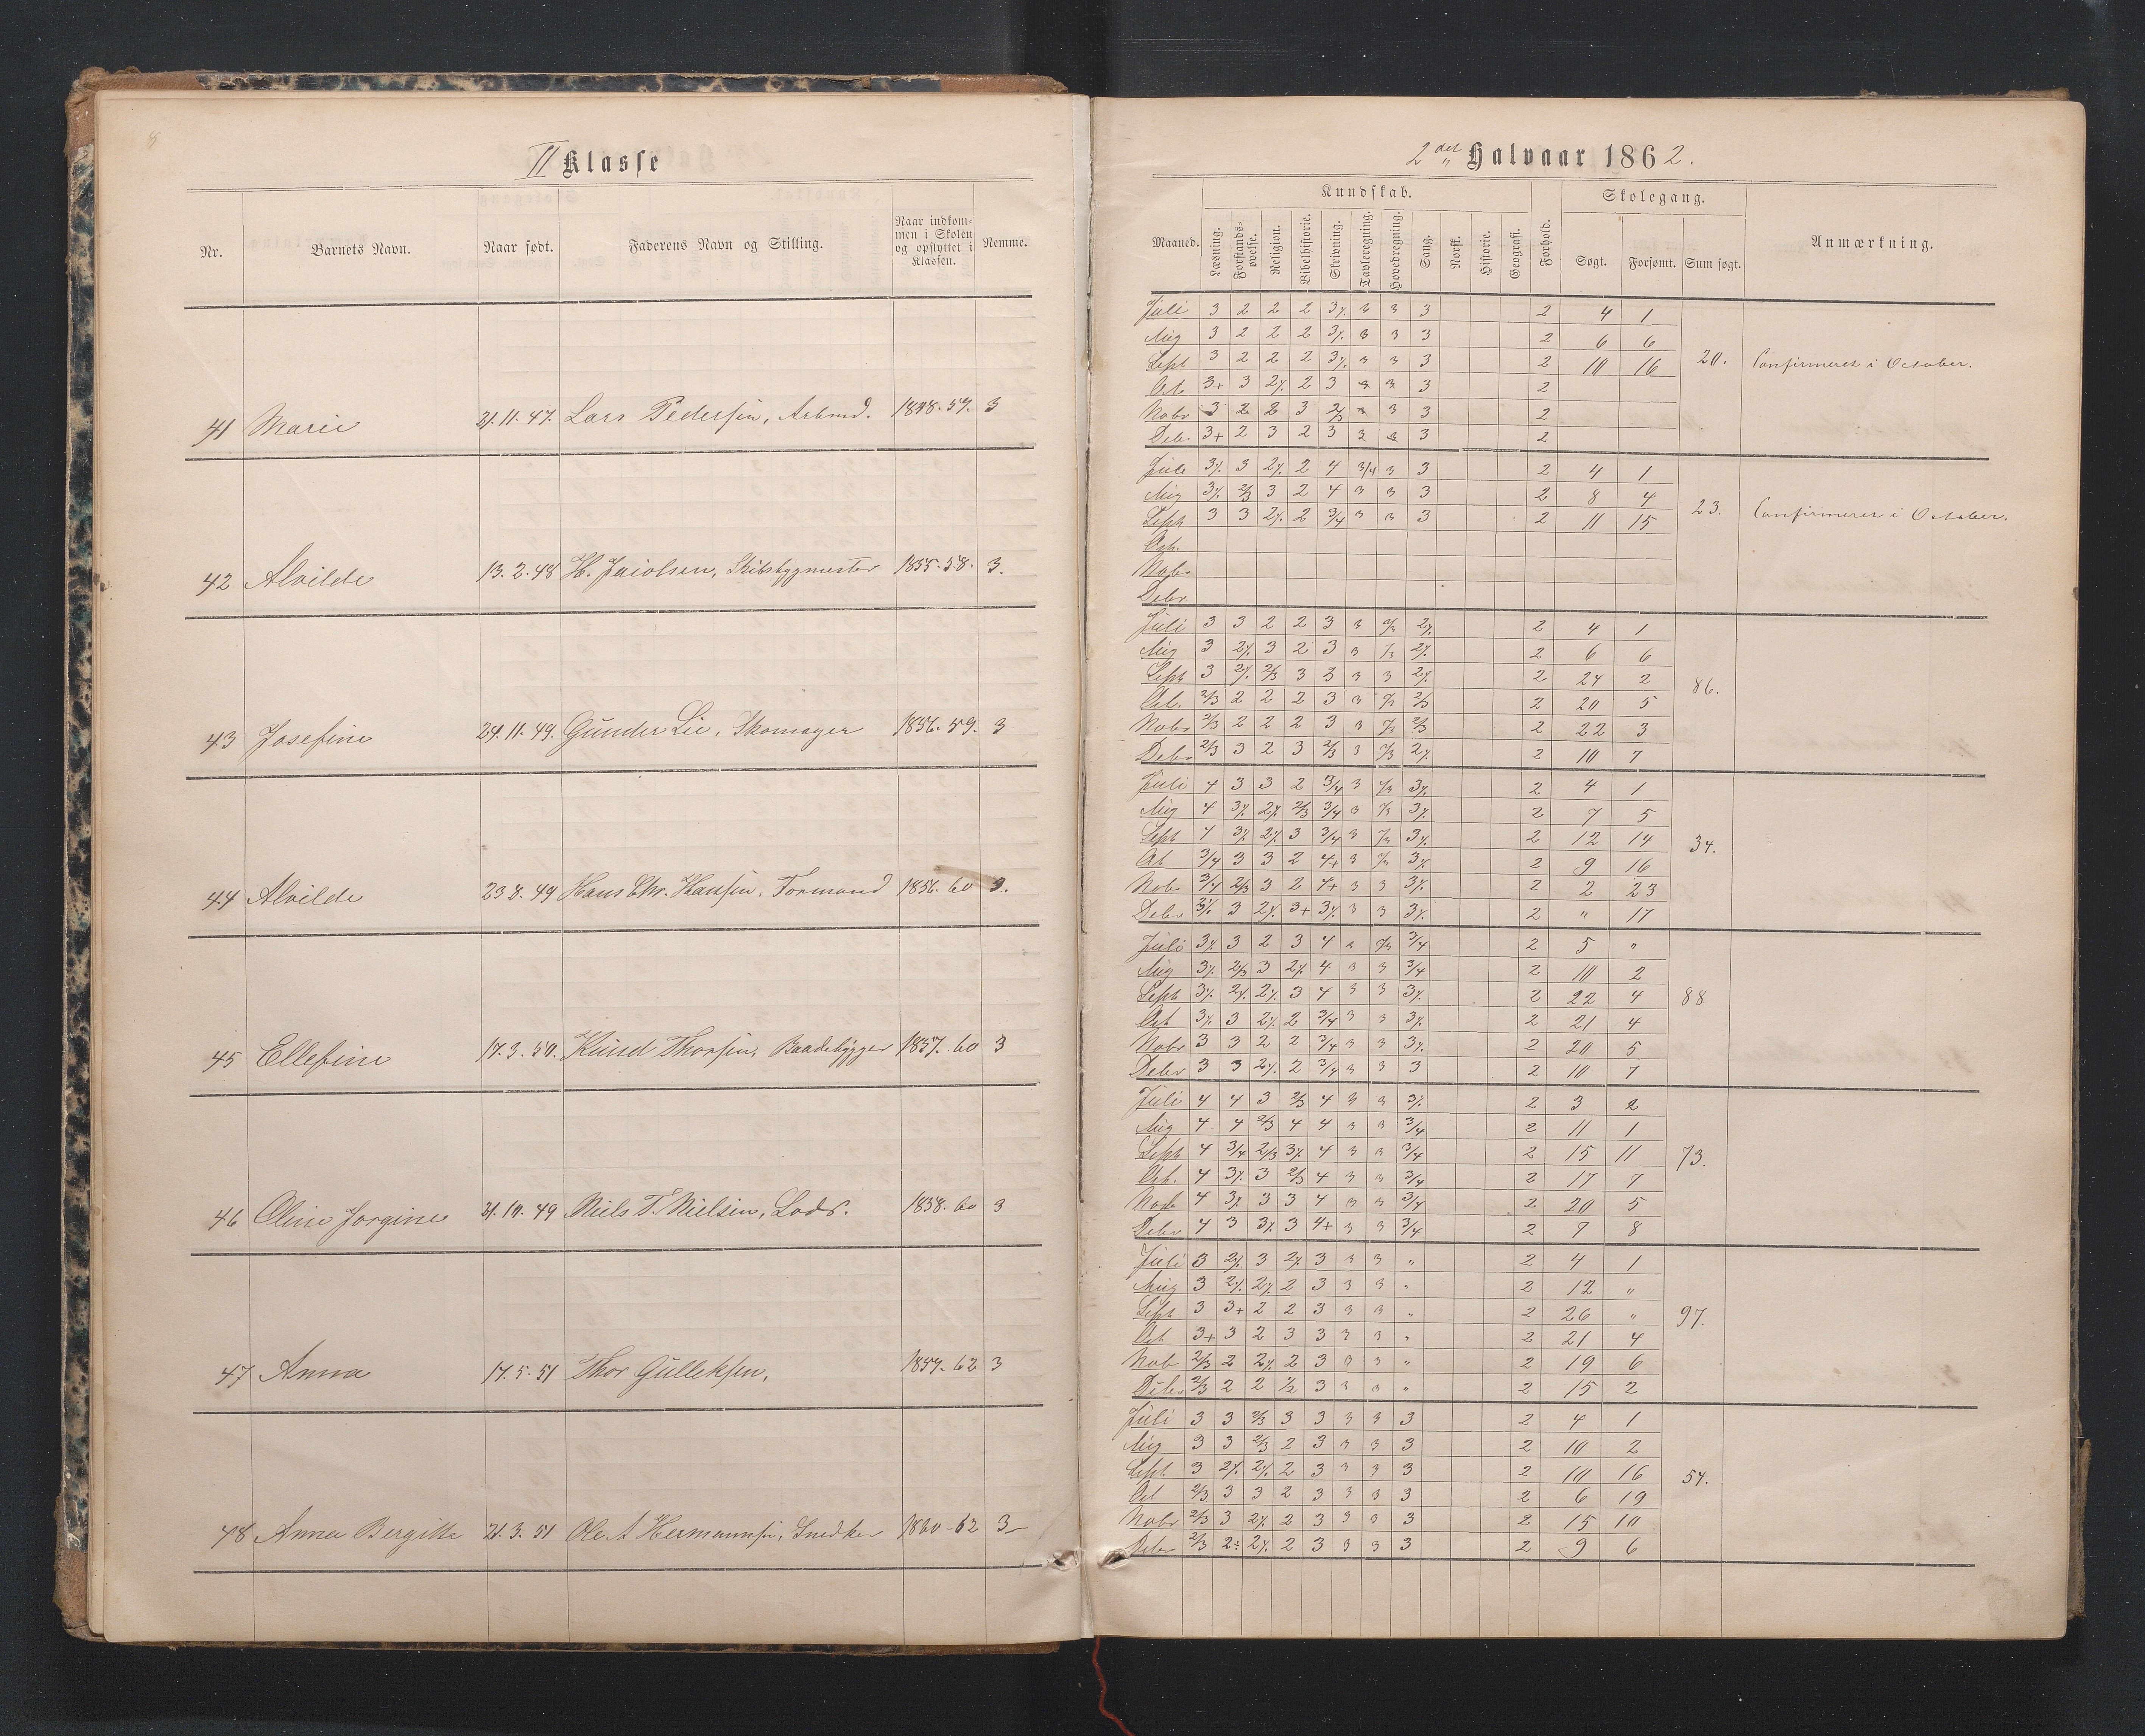 8
II Klasse
Nr. Barnets Navn. Naar født. Faderens Navn og Stilling. Naar indkommen i Skolen og opflyttet i Klassen. Nemme.
41 Marie 21.11.47. Lars Pedersen, Arbmd. 1858.59. 3
42 Alvilde 13.2.48 1855.58. 3.
43 Josefine 24.11.49. Gunder Lie, Skomager 1856.59. 3
44 Alvilde 23 8.49 Hans Chr. Hansen, Formand 1856.60 3.
45 Ellefine 17.3.50. Knud Thorsen, Baadebygger 1857.60 3
46 Oline Jorgine 21.10.49 Niels T. Nielsen, Lods. 1858.60 3
47 Anna 17.5.51 Thor Gulleksen, 1859.62 3
48 Anna Bergitte 21.3.51 Ole A Hermannsen, Snedker 1860-62 3-
2det Halvaar 1862.
Maaned. Kundskab. Forhold. Skolegang. Anmærkning.
Læsning. Forstandsøvelse. Religion. Bibelhistorie. Skrivning. Tavleregning. Hovedregning. Sang. Norsk. Historie. Geografi. Søgt. Forsømt. Sum søgt.
Juli 3 2 2 2 3 3 3 2 4 1
Aug 3 2 2 2 3 3 3 2 6 6
Sept 3 2 2 2 3 3 3 2 10 16 20. Confirmeret i October.
Oct 3+ 3 2 3 3 3 3 2
Nobr 3 2 2 3 2/3 3 3 3 2
Debr. 3+ 2 3 2 3 3 3 3 2
Juli 3 2 4 3/4 3 3 2 4 1
Aug 2/3 3 2 4 3 3 3 2 8 4
Sept 3 3 2 3/4 3 3 3 2 11 15 23. Confirmeret i October.
Oct.
Nobr
Debr
Juli 3 3 2 2 3 3 2 4 1
Aug 3 3 2 3 3 2 6 6
Sept 3 2/3 3 3 3 3 2 24 2 86.
Oct. 2/3 2 2 2 3 3 2/3 2 20 5
Nobr 2/3 2 2 2 3 3 2/3 2 22 3
Debr 2/3 3 2 3 2/3 3 2 10 7
Juli 4 3 3 2 3/4 3 2 4 1
Aug 4 2/3 3/4 3 2 7 5
Sept 4 3 3/4 3 2 12 14 34.
Oct 3/4 3 3 2 4+ 3 2 9 16
Nobr 3/4 2/3 3 2 4+ 3 3 2 2 23
Debr 3 3+ 3 3 2 " 17
Juli 3 2 3 4 3 3/4 2 5 "
Aug 2/3 3 4 3 3 3/4 2 10 2
Sept 3 4 3 3 2 22 4 88
Oct 3 2 3/4 3 3 2 21 4
Nobr 3 3 2 2 3/4 3 3 2 20 5
Debr 3 3 2 3/4 3 3 3 2 10 7
Juli 4 4 3 2/3 4 3 3 2 3 2
Aug 4 4 2/3 4 4 3 3 3/4 2 11 1
Sept 4 3/4 2/3 4 3 3 3/4 2 15 11 73.
Oct. 4 3 2/3 4 3 3 3/4 2 17 7
Nobr 4 3 3 4 3 3 3/4 2 20 5
Debr 4 3 3 4+ 3 3 3/4 2 7 8
Juli 3 3 3 3 3 " 2 4 1
Aug 3 2 3 3 3 " 2 12 "
Sept 3 3+ 2 2 3 3 3 " 2 26 " 97.
Oct 3+ 3 2 3 3 3 3 " 2 21 4
Nobr 2/3 2 2 3 3 3 " 2 19 6
Debr 2/3 2 2 1/2 3 3 3 " 2 15 2
Juli 3 3 2/3 3 3 3 3 3 2 4 1
Aug 3 3 2/3 2 3 3 3 3 2 10 2
Sept 3 2 3 3 3 3 2 10 16 54.
Oct 2/3 3 3 2 3 3 3 3 2 6 19
Nobr 2/3 3 2 3 3 3 3 2 15 10
Debr 2/3 2÷ 2 3 3 3 3 2 9 6